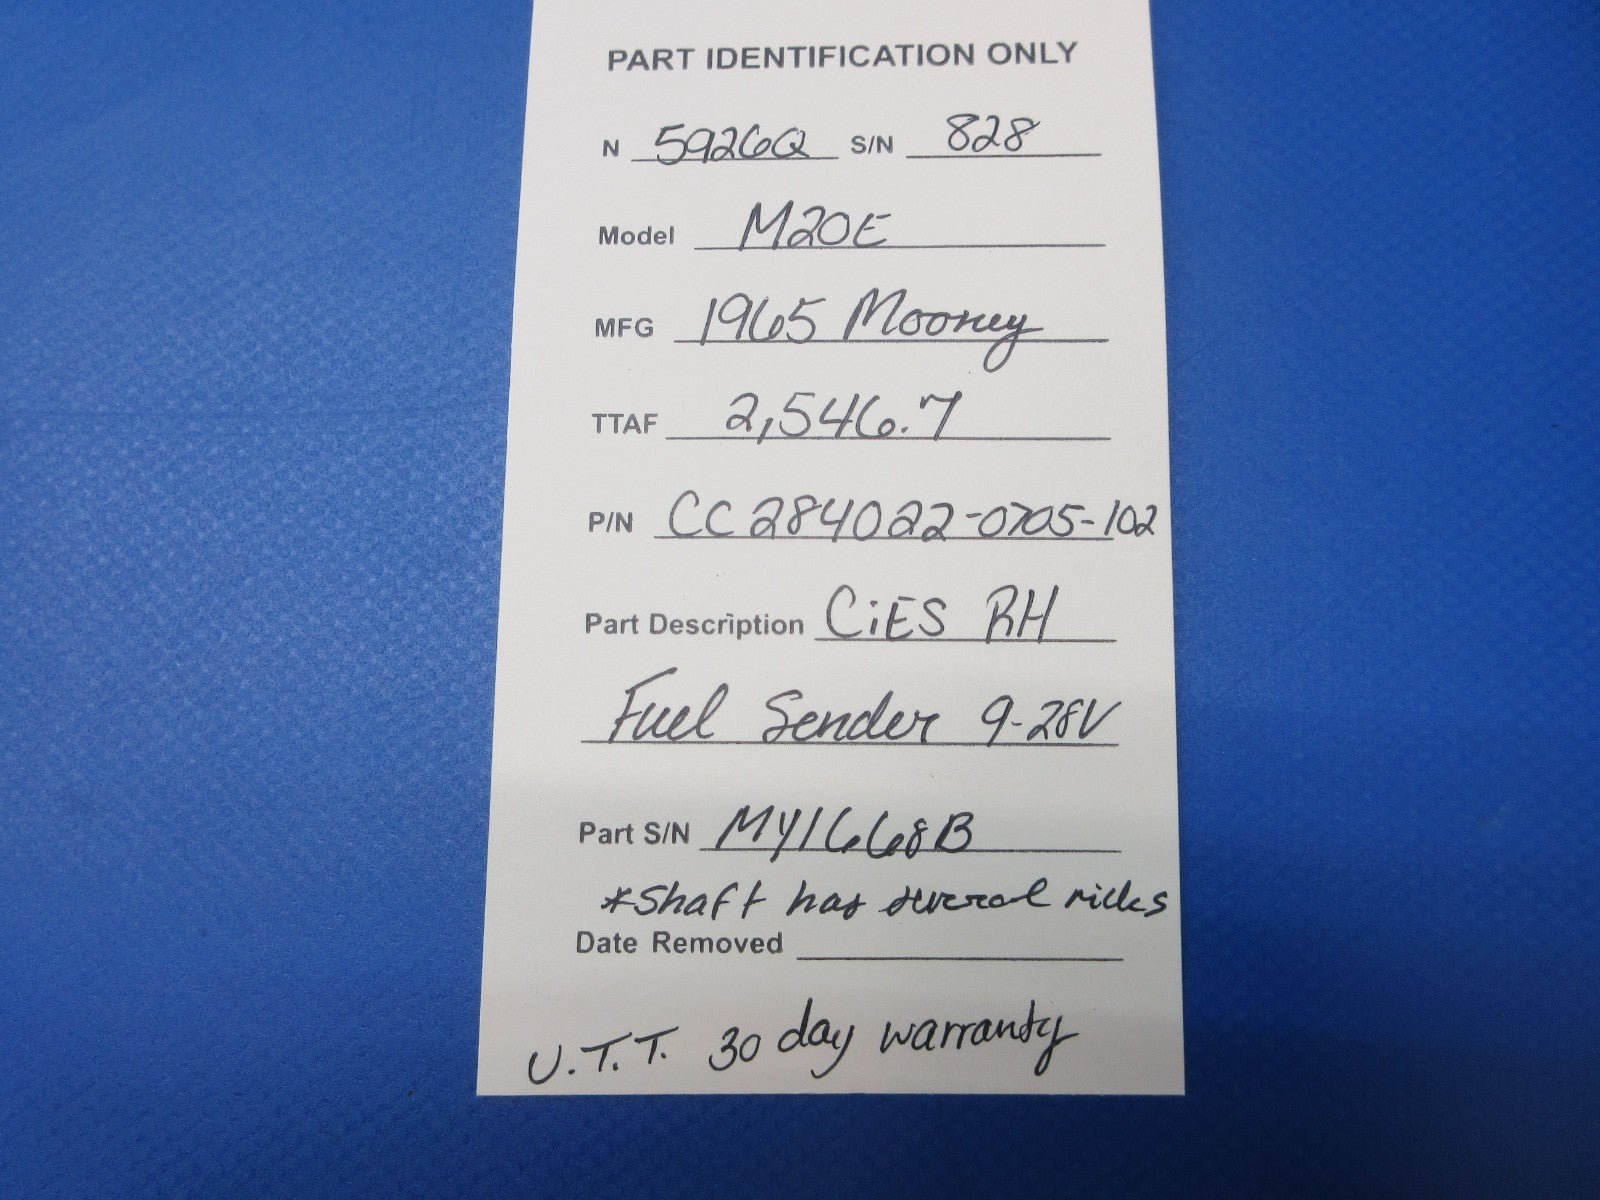 PART IDENTIFICATION ONLY
N 5926Q S/N 828
Model M20E
MFG 1965 Mooney
TTAF 2,546.7
P/N CC284022-0705-102
Part Description CiES RH
Fuel Sender 9-28V
Part S/N MY1668B
*Shaft has several nicks
Date Removed
U.T.T. 30 day warranty